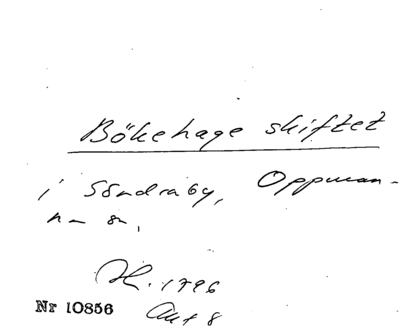 Bökehage skiftet
i Söndraby, Oppman-
na sn.
H. 1796
Nr 10856
Akt 8